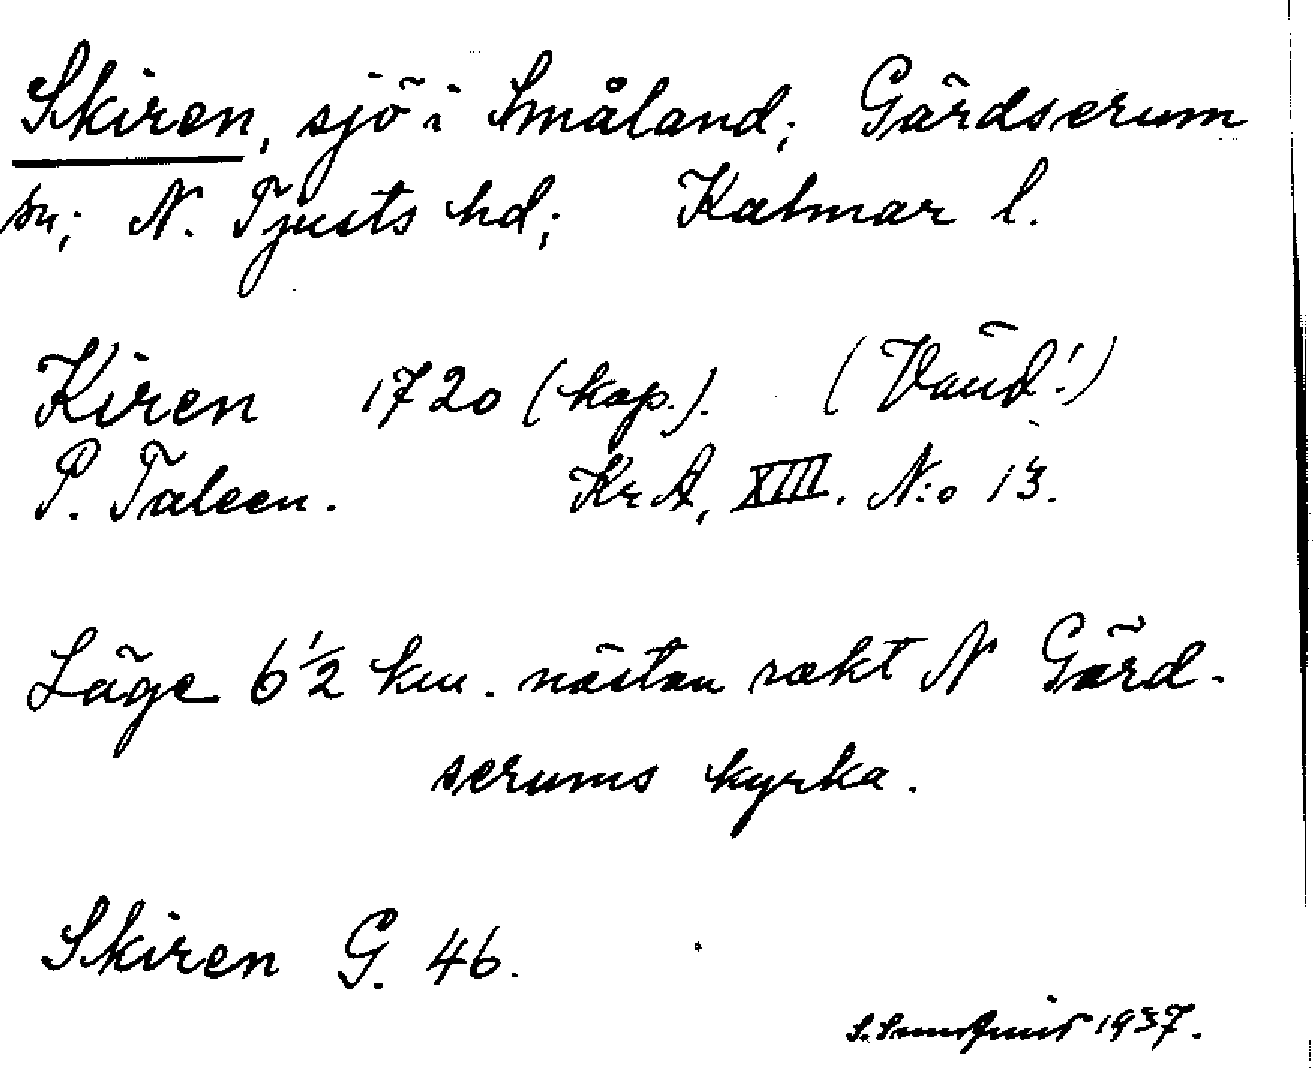 Skiren, sjö i Småland; Gärdserum
sn; N. Tjusts hd; Kalmar l.
Kiren 1720 (kop.). (Vänd!)
P. Taleen. KrA, XIII. N:o 13.
Läge 6 1/2 km. nästan rakt N Gärd-
serums kyrka.
Skiren G. 46.
S. Sundquist 1937.